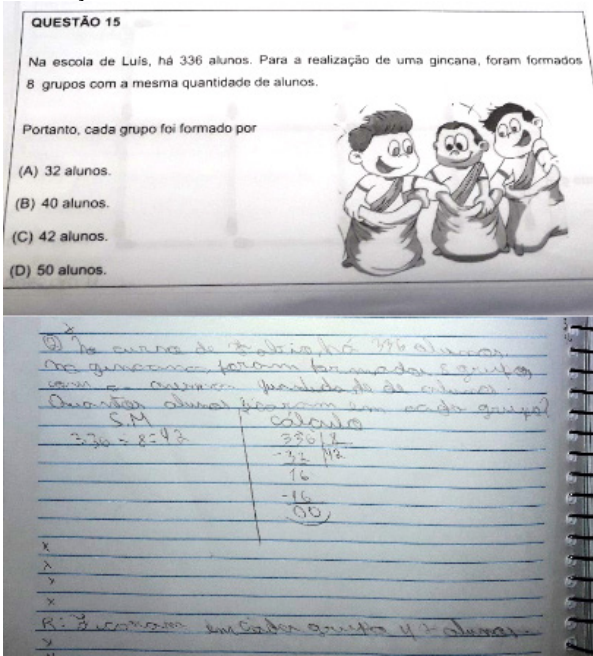 QUESTÃO 15
Na escola de Luís, há 336 alunos. Para a realização de uma gincana, foram formados
8 grupos com a mesma quantidade de alunos.
Portanto, cada grupo foi formado por
(A) 32 alunos.
(B) 40 alunos.
(C) 42 alunos.
(D) 50 alunos.
há 336 alunos
na gincana foram formados grupos
com a mesma de alunos.
Quantos alunos ficaram em cada grupo?
S.M cálculo
336 ÷ 8 = 42 336 8
-32 42
16
-16
00
x
x
x
x
R: Ficaram em cada grupo 42 alunos.